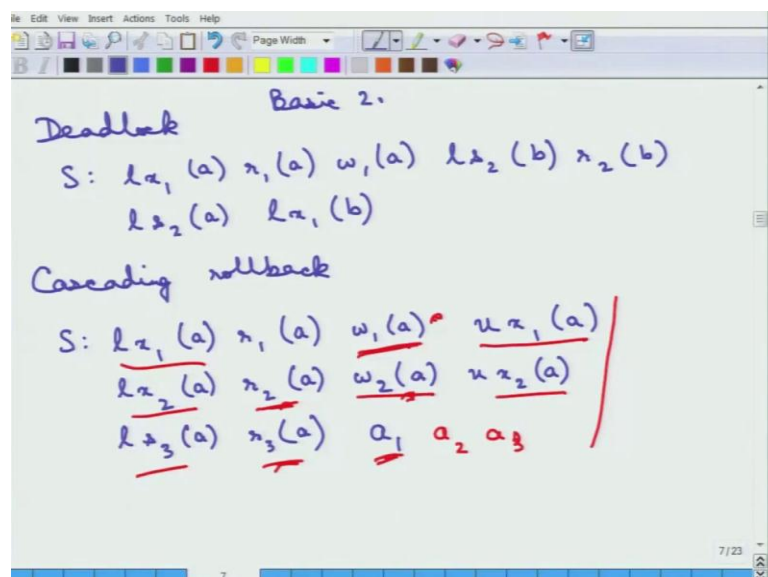 File Edit View Insert Actions Tools Help
Page Width
B I
Basic 2.
Deadlock
S: lx₁(a) r₁(a) w₁(a) ls₂(b) r₂(b)
ls₂(a) lx₁(b)
Cascading rollback
S: lx₁(a) r₁(a) w₁(a) ux₁(a)
lx₂(a) r₂(a) w₂(a) ux₂(a)
ls₃(a) r₃(a) a₁ a₂ a₃
7/23
7